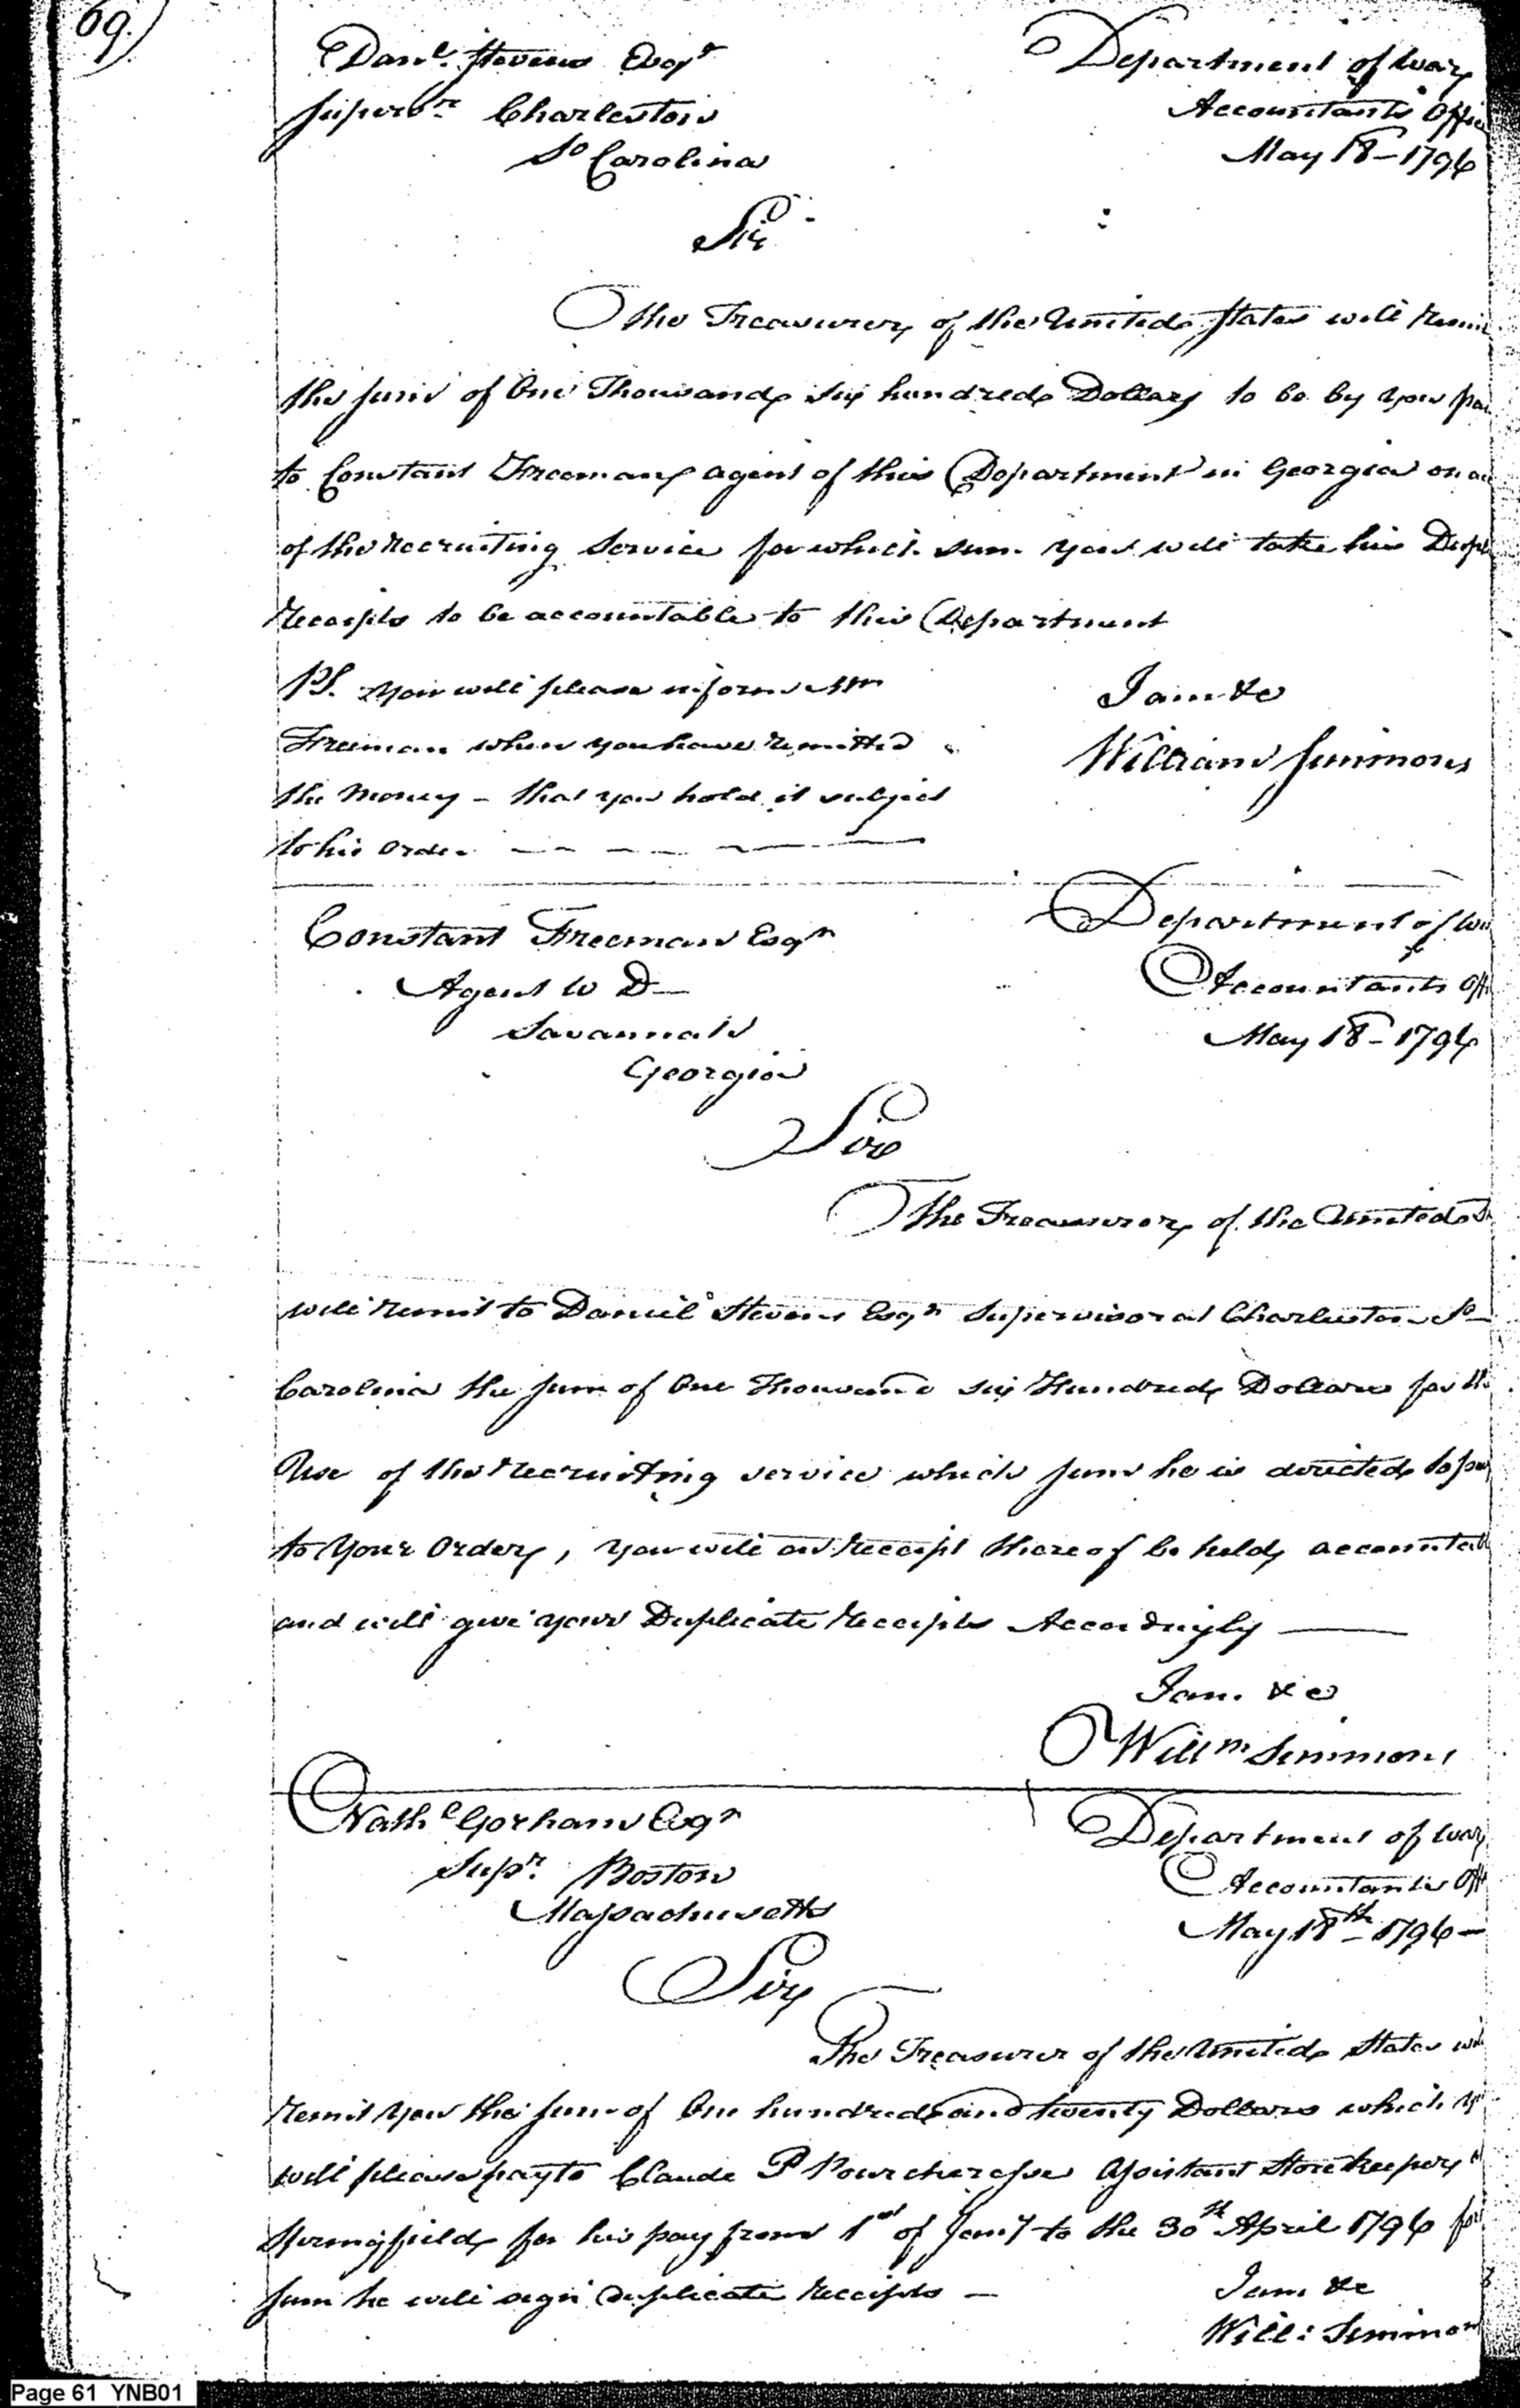 69.
Danl. Stevens Esqr
Supervr. Charleston
So Carolina
Department of War
Accountants Offic
May 18 - 1796
Sir
The Treasurer of the United States will remi
the sum of One Thousand six hundred Dollars to be by you pai
to Constant Freeman agent of this Department in Georgia on ac
of the recruiting Service for which sum you will take his Dupl
receipts to be accountable to this Department
PS. You will please inform Mr
Freeman when you have remitted
the money - that you hold it subject
to his order
I am &c
William Simmons
Constant Freeman Esqr
Agent W D
Savannah
Georgia
Department of Wa
Accountants Offi
May 18 - 1796
Sir
The Treasurer of the United S
will remit to Daniel Stevens Esqr Supervisor at Charleston So
Carolina the sum of One Thousand six Hundred Dollars for th
Use of the recruiting service which sum he is directed to pay
to your Order, you will on receipt thereof be held accountabl
and will give your Duplicate receipts Accordingly
I am &c
Willm Simmons
Nathl Gorham Esqr
Supr. Boston
Massachusetts
Department of War
Accountants Offi
May 18th - 1796 -
Sir
The Treasurer of the United States wil
remit you the sum of One hundred and twenty Dollars which yo
will please pay to Claude P Assistant Storekeeper
Springfield for his pay from 1st of Jany to the 30th April 1796 for
sum he will sign duplicate receipts -
I am &c
Will: Simmon
Page 61 YNB01